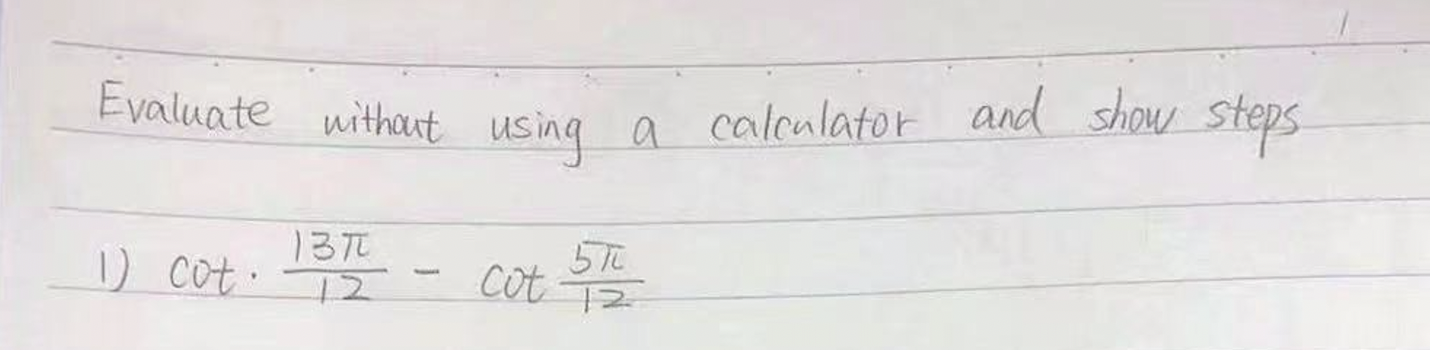 Evaluate without using a calculator and show steps
1) cot · 13π/12 - cot 5π/12